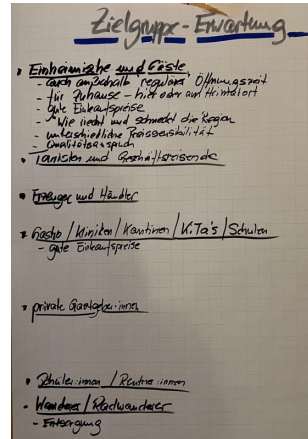 Zielgruppe - Erwartung
• Einheimische und Gäste
- auch außerhalb "regulärer" Öffnungszeit
- für Zuhause - hier oder am Heimatort
- gute Einkaufspreise
- "Wie riecht und schmeckt die Region
- unterschiedliche Preissensibilität
- Qualitätsanspruch
• Touristen und Geschäftsreisende
• Erzeuger und Händler
• Gastro / Kliniken / Kantinen / KiTa's / Schulen
- gute Einkaufspreise
• private Gastgeber:innen
• Schüler:innen / Rentner:innen
• Wanderer / Radwanderer
- Entsorgung